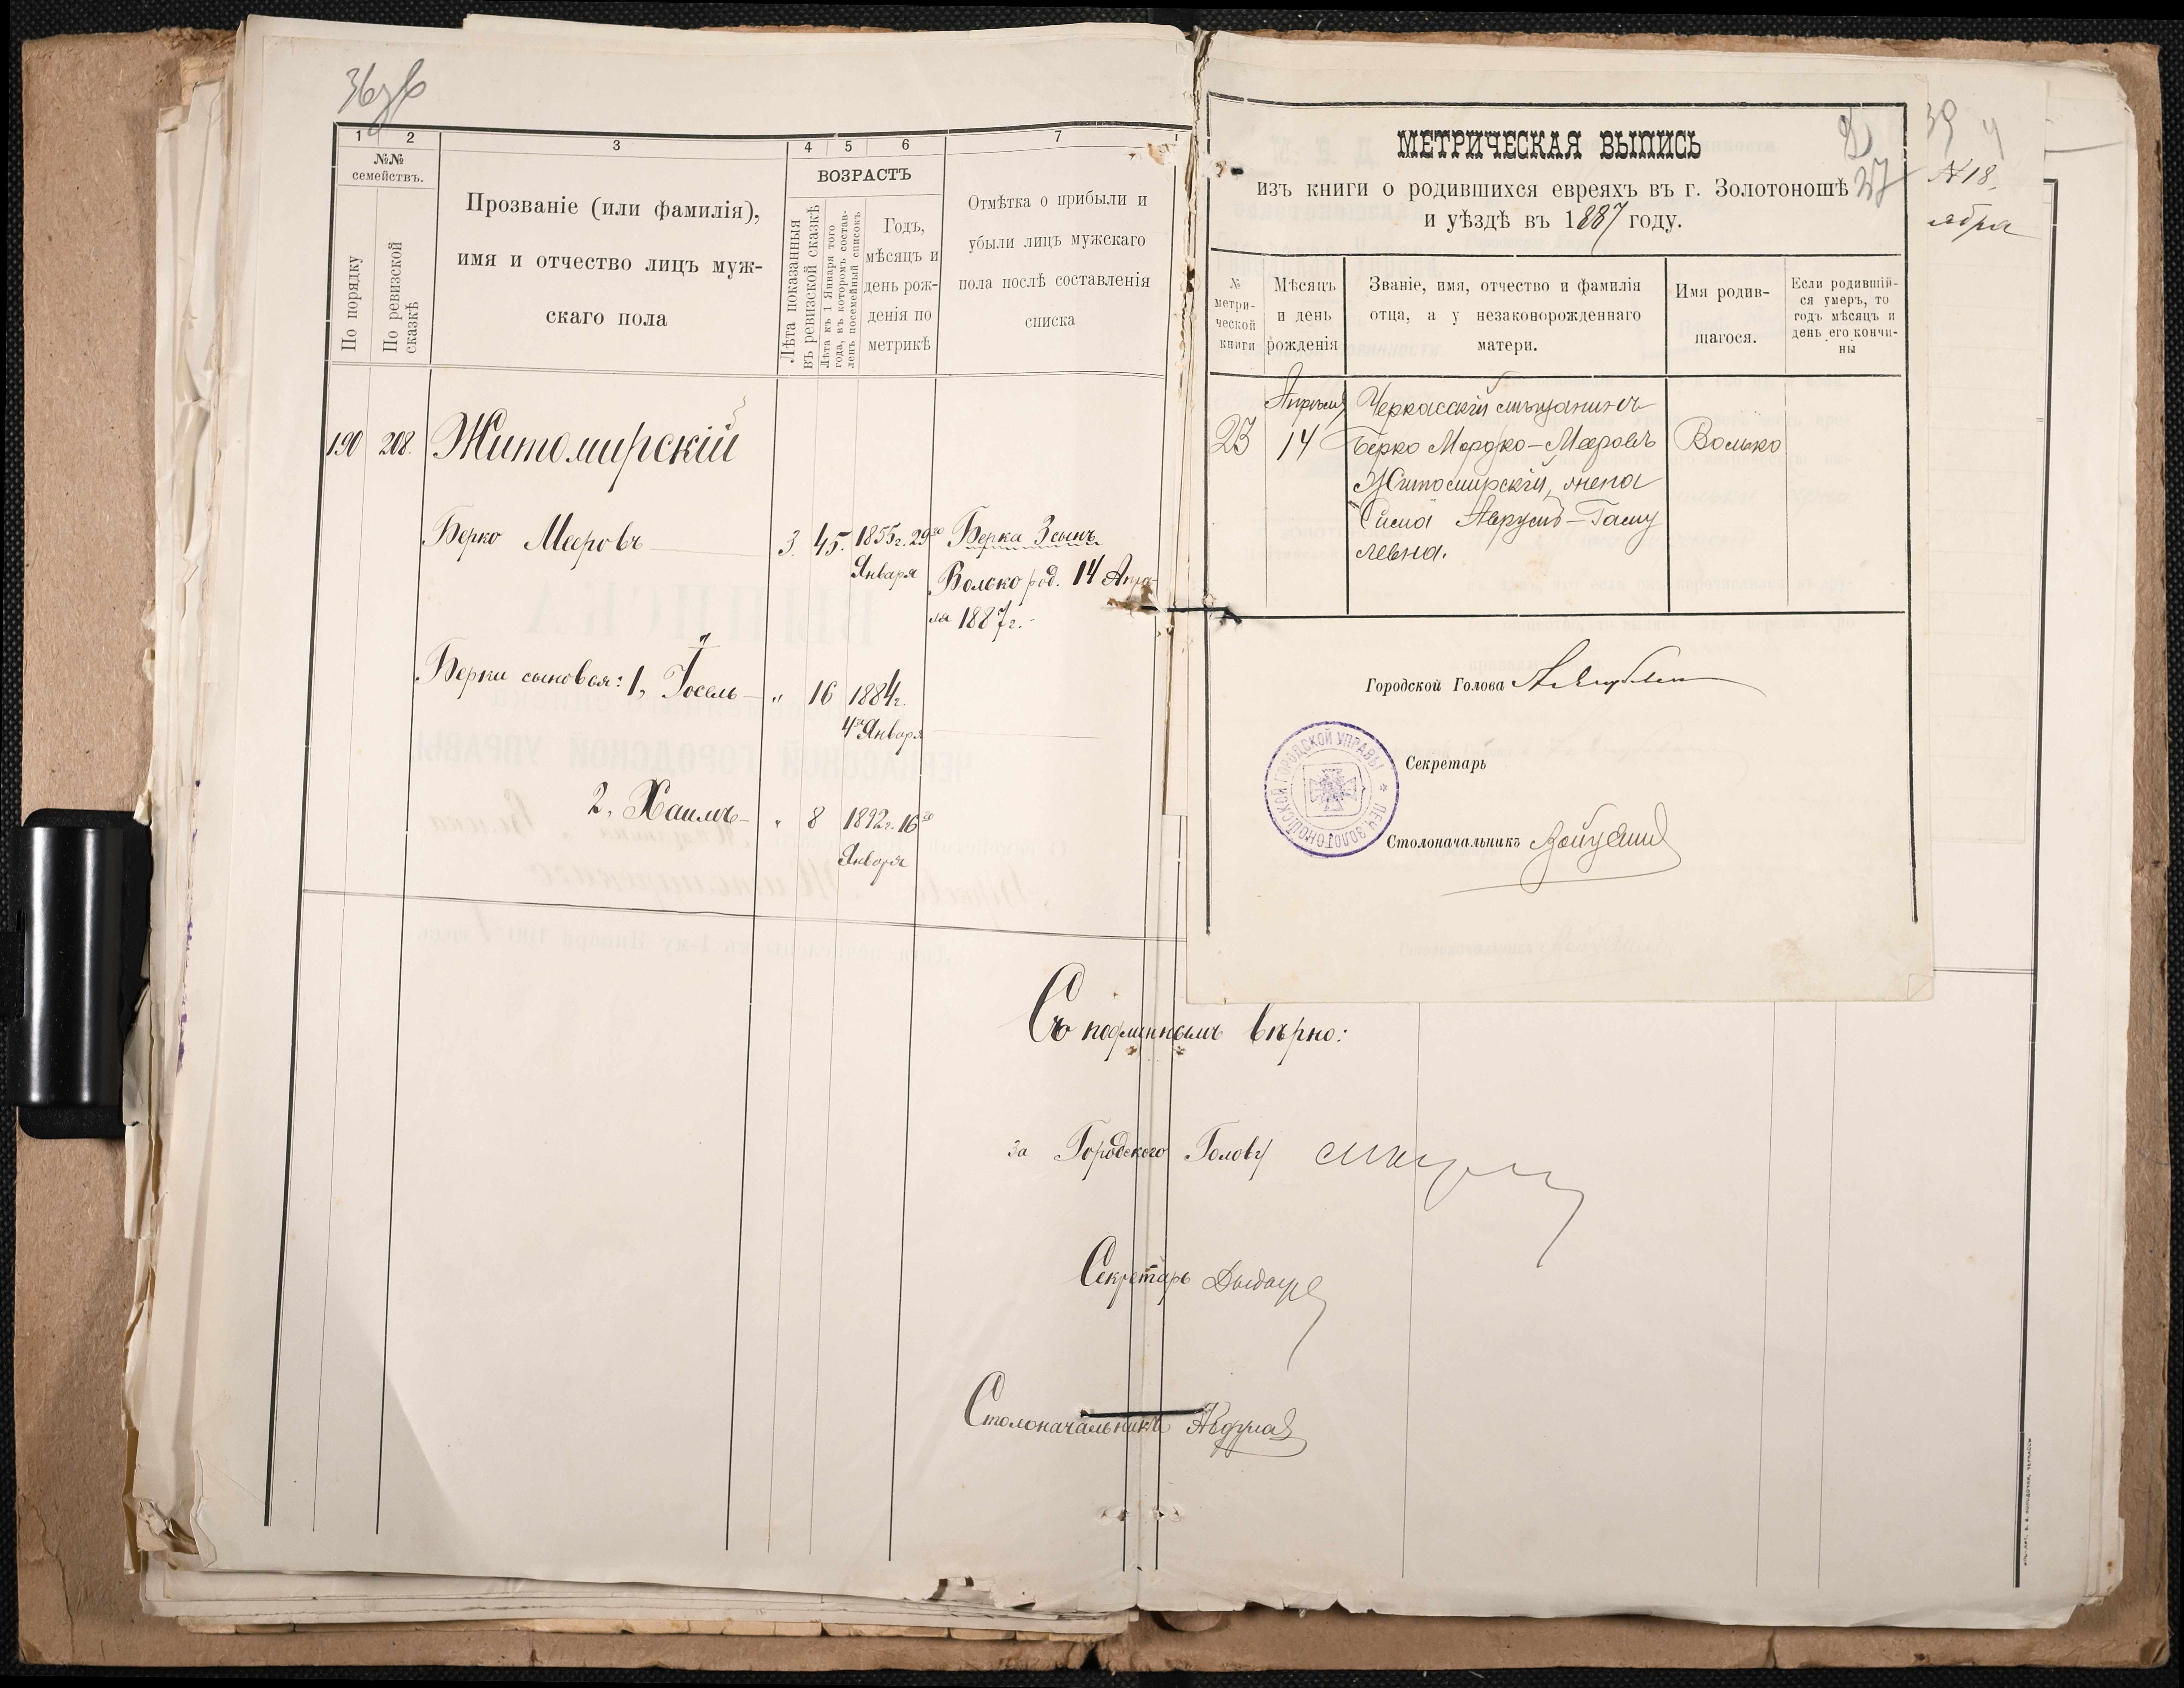 36 об
1 2 3 4 5 6 7
№№ семействъ.
По порядку
По ревизской сказкѣ
Прозваніе (или фамилія),
имя и отчество лицъ муж-
скаго пола
ВОЗРАСТЪ
Лѣта показанныя
въ ревизской сказкѣ
Лѣта къ 1 Января того
года, въ которомъ состав-
ленъ посемейный списокъ
Годъ,
мѣсяцъ и
день рож-
денія по
метрикѣ
Отмѣтка о прибыли и
убыли лицъ мужскаго
пола послѣ составленія
списка
190 208. Житомирскій
Берко Мееровъ 3. 45. 1855г. 29го
Января
Берка 3 сынъ
Волько род. 14 Апрѣ-
ля 1887г.
Берки сыновья: 1, Іосель " 16 1884г.
4го Января
2, Хаимъ " 8 1892г. 16го
Января
Съ подлиннымъ вѣрно:
За Городского Голову
Секретарь
Столоначальникъ
МЕТРИЧЕСКАЯ ВЫПИСЬ
изъ книги о родившихся евреяхъ въ г. Золотоношѣ
и уѣздѣ въ 1887 году.
37
№
метри-
ческой
книги
Мѣсяцъ
и день
рожденія
Званіе, имя, отчество и фамилія
отца, а у незаконорожденнаго
матери.
Имя родив-
щагося.
Если родившій-
ся умеръ, то
годъ мѣсяцъ и
день его кончи-
ны
Апрѣля Черкасскій мѣщанинъ
23 14 Берко Мордко-Мееровъ Волько
Житомирскій, жена
Сима Аврумъ-Гаму
левна.
Городской Голова
Секретарь
Столоначальникъ
ПЕЧ. ЗОЛОТОНОШСКОЙ ГОРОДСКОЙ УПРАВЫ
39
№ 18.
ября